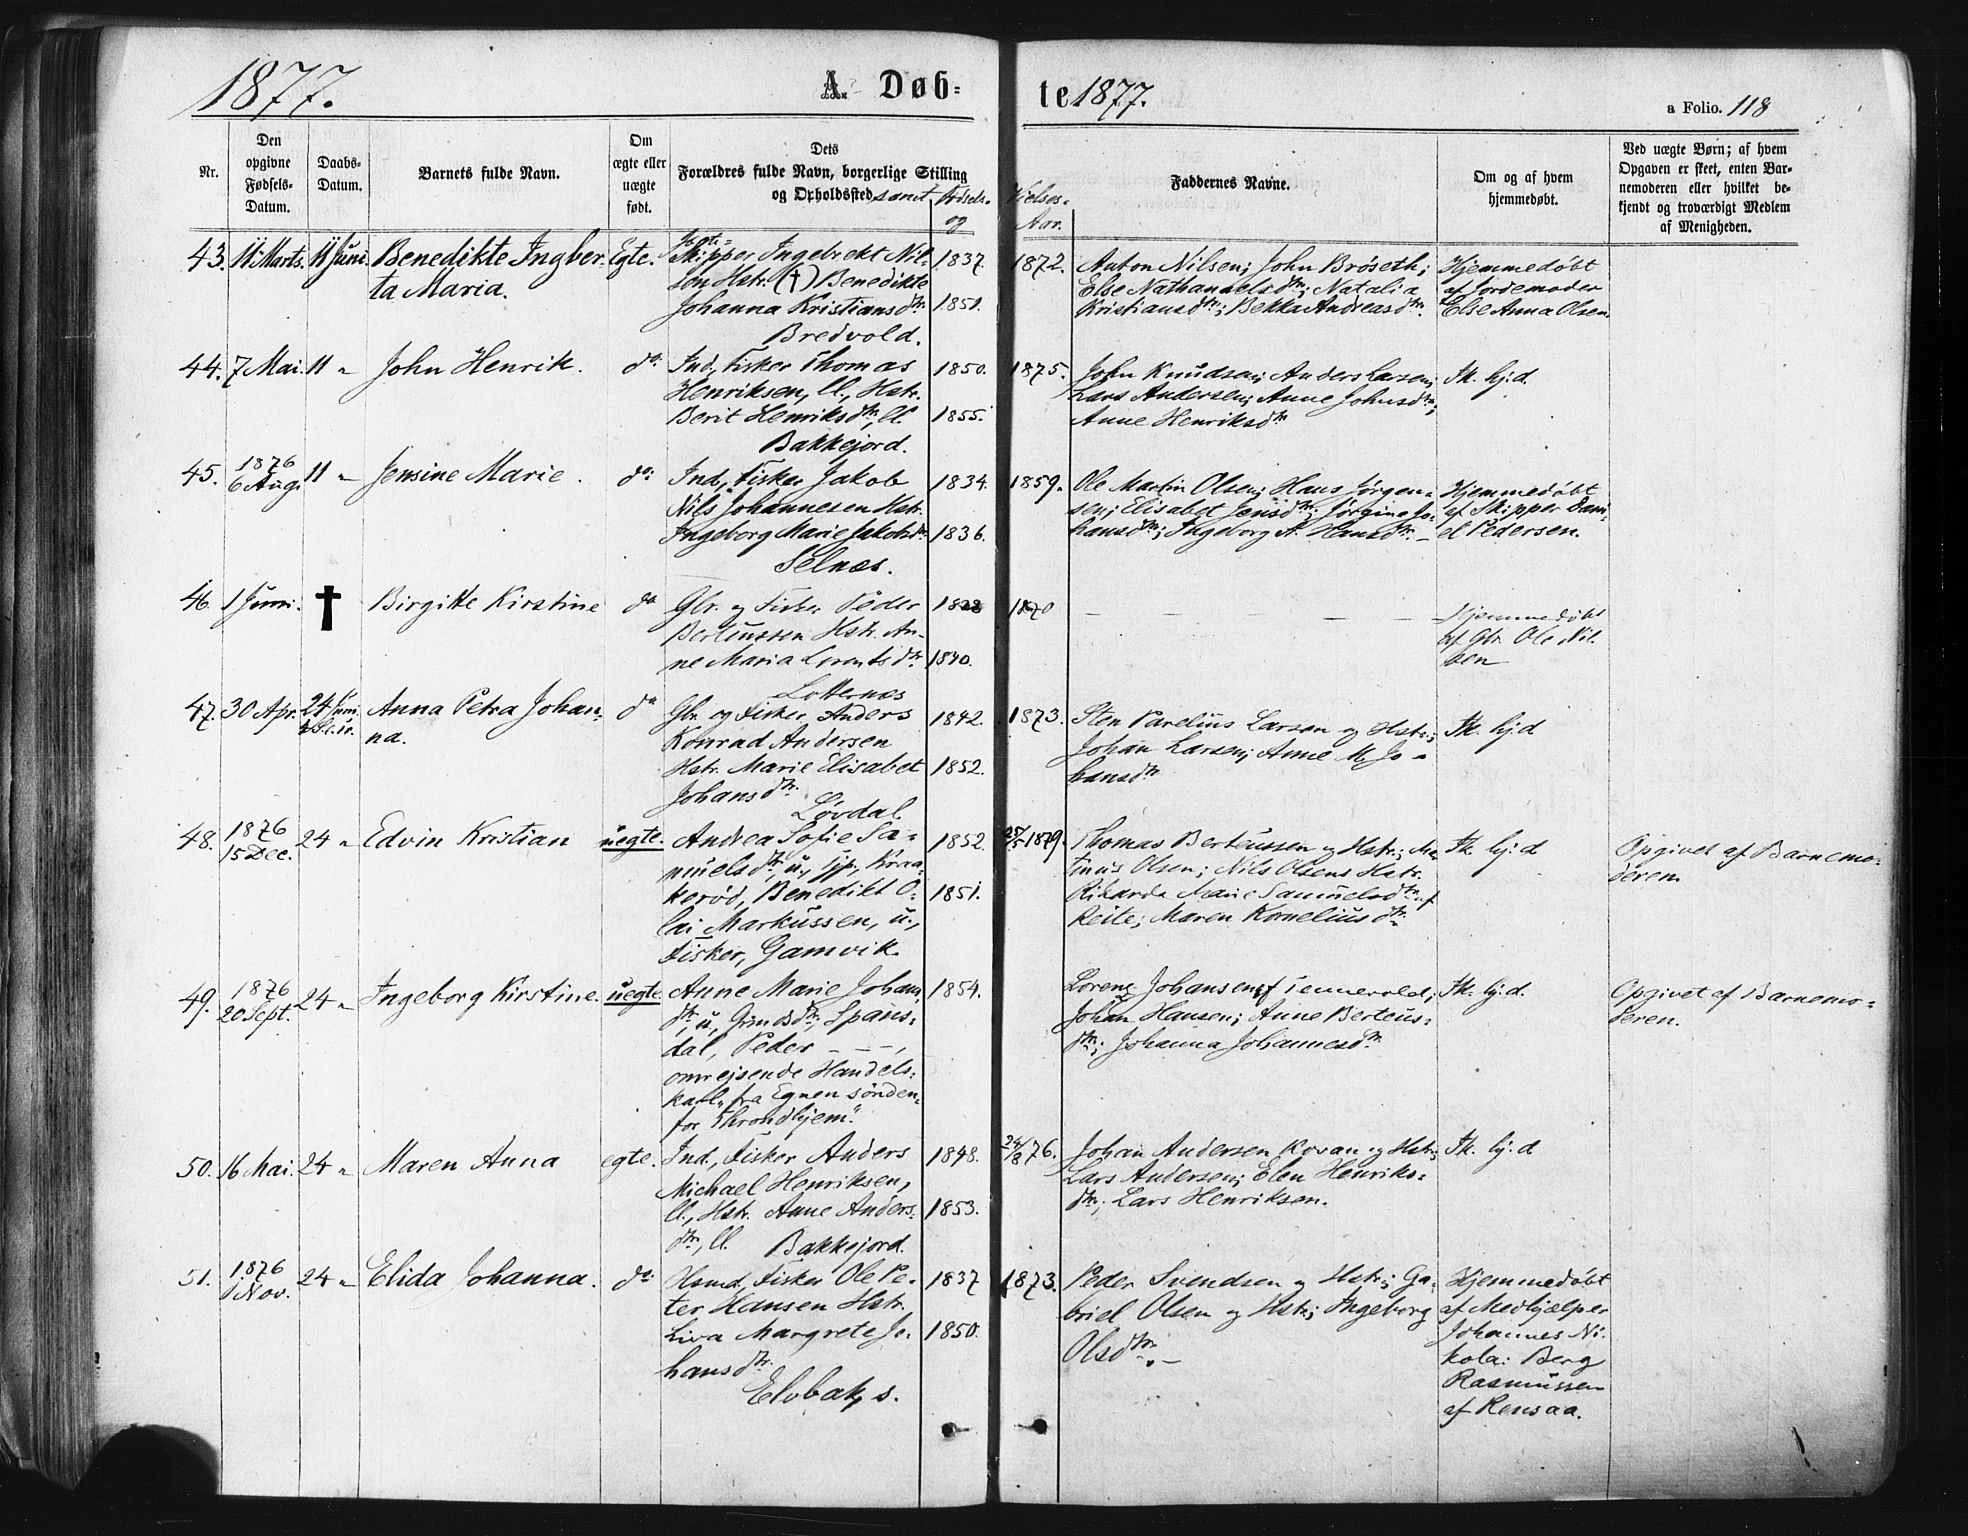 1877.
A. Døb-
te 1877.
a Folio. 118
Nr.
Den
opgivne
Fødsels-
Datum.
Daabs-
Datum.
Barnets fulde Navn.
Om
ægte eller
uægte
født.
Dets
Forældres fulde Navn, borgerlige Stilling
og Opholdssted samt Fødsels-
og
Vielses-
Aar.
Faddernes Navne.
Om og af hvem
hjemmedøbt.
Ved uægte Børn; af hvem
Opgaven er skeet, enten Bar-
nemoderen eller hvilket be-
kjendt og troværdigt Medlem
af Menigheden.
43. 11 Marts. 11 Juni. Benedikte Ingber-
ta Maria.
Egte.
Skipper Ingebrekt Nil-
sen Hstr. (†) Benedikte
Johanna Kristiansdtr.
Bredvold.
1837.
1851.
1872.
Anton Nilsen; John Brøseth;
Else Nathanaelsdtr; Natalia
Kristiansdtr; Bekka Andreasdtr.
Hjemmedøbt
af Jordemoder
Else Anna Olsen.
44. 7 Mai. 11 " John Henrik.
do.
Ind., Fisker Thomas
Henriksen, ll., Hstr.
Berit Henriksdtr, ll.
Bakkejord.
1850.
1855.
1875.
John Knudsen; Anders Larsen;
Lars Andersen; Anne Johnsdtr;
Anne Henriksdtr
Ik. hj. d.
45. 1876
6 Aug. 11 " Jensine Marie.
do.
Ind., Fisker Jakob
Nils Johannesen Hstr.
Ingeborg Marie Jakobsdtr
Selnæs.
1834.
1836.
1859.
Ole Martin Olsen; Hans Jørgen-
sen; Elisabet Jensdtr; Jørgine Jo-
hansdtr; Ingeborg A. Hansdtr. –
Hjemmedøbt
af Skipper Dani-
el Pedersen.
46. 1 Juni. † Birgitte Kirstine
do
Gbr. og Fisker Peder
Berteussen Hstr. An-
ne Maria Lorentsdtr.
Lotternes
1840.
1870
– – – –
Hjemmedøbt
af Gbr. Ole Nil-
sen
47. 30 Apr. 24 Juni.
Anna Petra Johan-
na.
do
Gbr. og Fisker Anders
Konrad Andersen
Hstr. Marie Elisabet
Johansdtr.
Løvdal
1842.
1852.
1873.
Sten Parelius Larsen og Hstr.;
Johan Larsen; Anne M. Jo-
hansdtr
Ik. hj. d
48. 1876
15 Dec. 24 " Edvin Kristian
uegte.
Andrea Sofie Sa-
muelsdtr, u., Tjp., Kraa-
kerød, Benedikt O-
lai Markussen, u.,
Fisker, Gamvik
1852.
1851.
25/5 1879.
Thomas Berteussen og Hstr.; Ma-
tinus Olsen; Nils Olsens Hstr.
Rikarda Marie Samuelsdtr af
Reite; Maren Korneliusdtr
Ik. hj. d
Opgivet af Barnemo-
deren
49. 1876
20 Sept. 24 " Ingeborg Kirstine.
uegte
Anne Marie Johans-
dtr, u., Grmdsdtr, Spans-
dal, Peder – – – ,
omrejsende Handels-
karl „fra Egnen sønden-
for Throndhjem".
1854.
Lorenz Johansen af Tennevold;
Johan Hansen; Anne Berteus-
dtr; Johanna Johannesdtr
Ik. hj. d.
Opgivet af Barnemo-
deren.
50. 16 Mai. 24 " Maren Anna
egte.
Ind., Fisker Anders
Michael Henriksen,
ll., Hstr. Anne Anders-
dtr., ll. Bakkejord.
1848.
1853.
24/8 76.
Johan Andersen Kovan og Hstr.;
Lars Andersen; Elen Henriks-
dtr; Lars Henriksen.
Ik. hj. d
51. 1876
1 Nov. 24 " Elida Johanna.
do.
Hsmd., Fisker Ole Pe-
ter Hansen Hstr.
Liva Margrete Jo-
hansdtr.
Elvbak, s.
1837
1850.
1873.
Peder Svendsen og Hstr.; Ga-
briel Olsen og Hstr.; Ingeborg
Olsdtr. –
Hjemmedøbt
af Medhjælper
Johannes Ni-
kolai Berg
Rasmussen
af Rensaa.